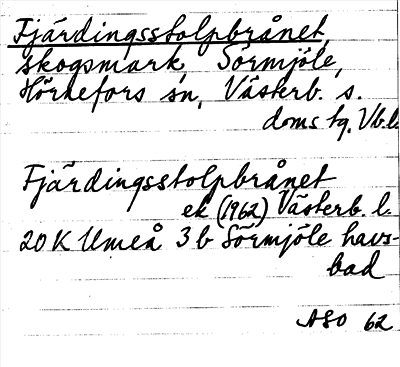 Fjärdingsstolpbrånet,
skogsmark, Sörmjöle,
Hörnefors sn, Västerb. s.
doms tg. Vb.l.
Fjärdingsstolpbrånet
ek (1962) Västerb. l.
20 K Umeå 3 b Sörmjöle havs-
bad
ASO 62